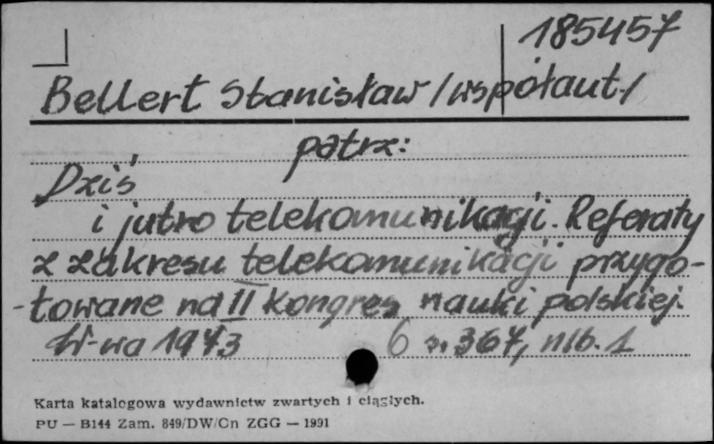 185457
Bellert Stanisław /współaut./
patrz:
Dziś
i jutro telekomunikacji. Referaty
z zakresu telekomunikacji przygo-
-towane na II Kongres nauki polskiej.
W-wa 1973 6 s. 367, nlb. 1
Karta katalogowa wydawnictw zwartych i ciągłych.
PU — B144 Zam. 849/DW/Cn ZGG — 1991